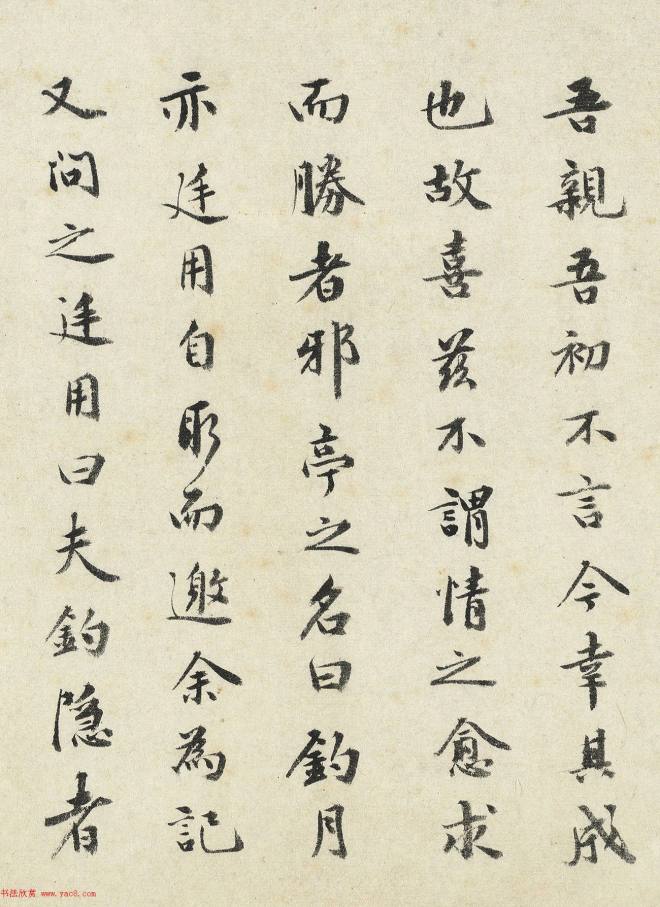 吾親吾初不言今幸具成
也故喜茲不謂情之愈求
而勝者邪亭之名曰釣月
亦廷用自取而邀余為記
又問之廷用曰夫釣隱者
书法欣赏 www.yac8.com